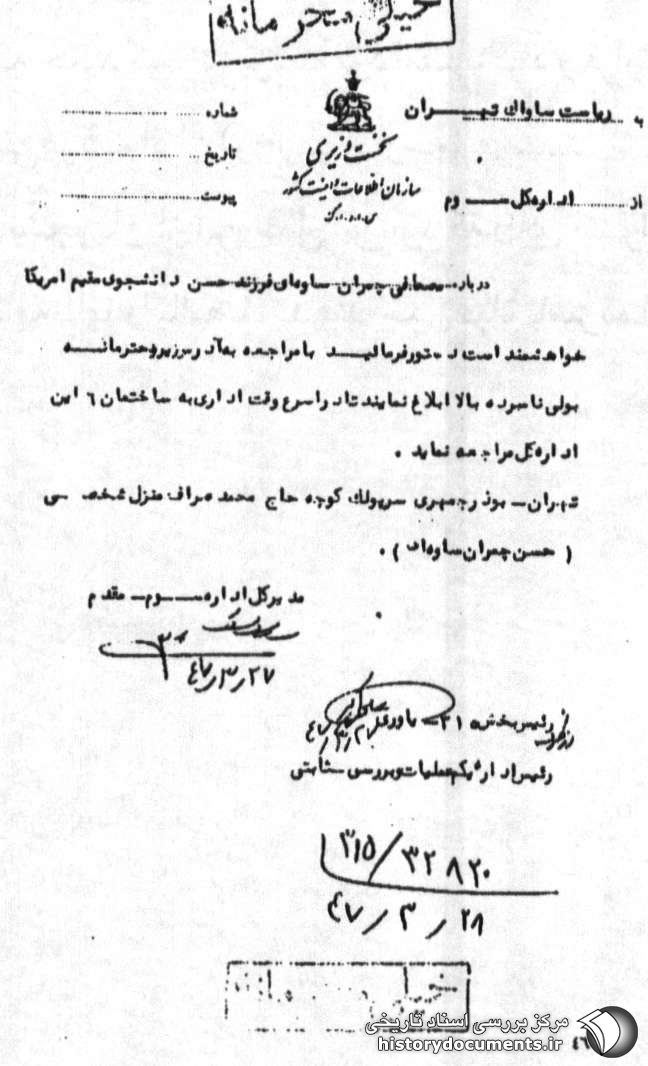 خیلی محرمانه
به ریاست ساواک تهران
از اداره کل سوم
نخست وزیری
سازمان اطلاعات و امنیت کشور
س.ا.و.ا.ک
شماره
تاریخ
پیوست
درباره مصطفی چمران ساوه‌ای فرزند حسن دانشجوی مقیم امریکا
خواهشمند است دستور فرمائید با مراجعه به آدرس زیر و محترمانه
بولی نامبرده بالا ابلاغ نمایند تا در اسرع وقت اداری به ساختمان ۶ این
اداره کل مراجعه نماید .
تهران - بوذرجمهری سرپولک کوچه حاج محمد صراف منزل شخصی
( حسن چمران ساوه‌ای ) .
مدیرکل اداره سوم - مقدم
۴۷/۳/۲۷
رئیس بخش ۳۱۱ - یاوری
۴۷/۳/۲
رئیس اداره یکم عملیات و بررسی - ثابتی
۳۱۵/۳۲۸۲۰
۴۷/۳/۲۸
خیلی محرمانه
مرکز بررسی اسناد تاریخی
historydocuments.ir
۴۶